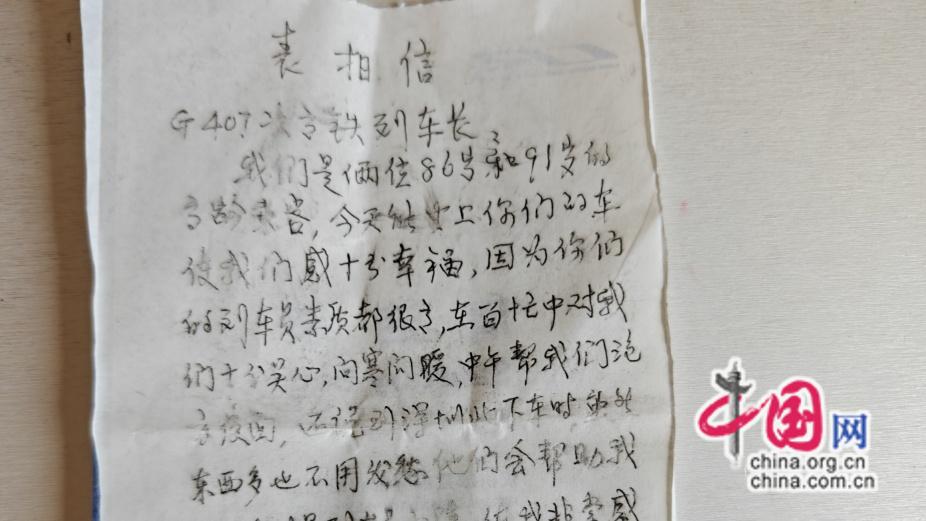 表相信
G407次高铁列车长
我们是俩位86岁和91岁的
高龄乘客，今天能坐上你们的车
使我们感十分幸福，因为你们
的列车员素质都很高，在百忙中对我
们十分关心，问寒问暖，中午帮我们泡
方便面，还说到深圳北下车时，虽然
东西多也不用发愁他们会帮助我
我非常感
中国网
china.org.cn
china.com.cn